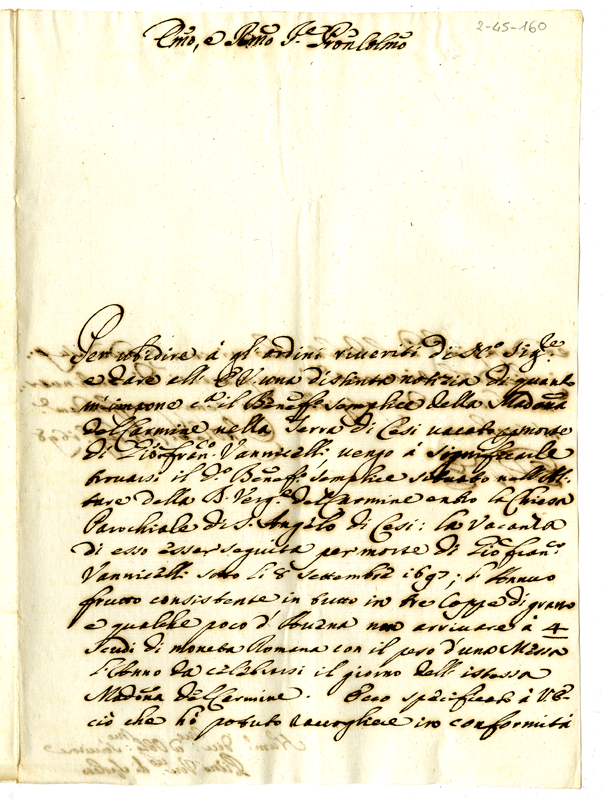 2-45-160
Emo, e Rmo Sre Pron Colmo
Per ubidire á gl'ordini riveriti di Nro Sigre
e dare all'E.V. una distinta notizia di quanto
m'impone ca il Beneff: semplice della Madona
del Carmine nella Terra di Cesi vacato p morte
di Gio: franco Vannicelli, vengo á significarle
trovarsi il do Beneff: semplice situato nell'Al-
tare della B. Verge del Carmine entro la Chiesa
Parochiale di S. Angelo di Cesi: la Vacanza
di esso esser seguita per morte di Gio: franco
Vannicelli sotto li 8 Settembre 1697; l'Annuo
frutto consistente in tutto in tre Coppe di grano
e qualche poco d' non arrivare á 4
scudi di moneta Romana con il peso d'una Messa
l'Anno da celebrarsi il giorno dell'istessa
Madona del Carmine. Ecco specificato á V.E.
ciò che hò potuto raccogliere in conformitá